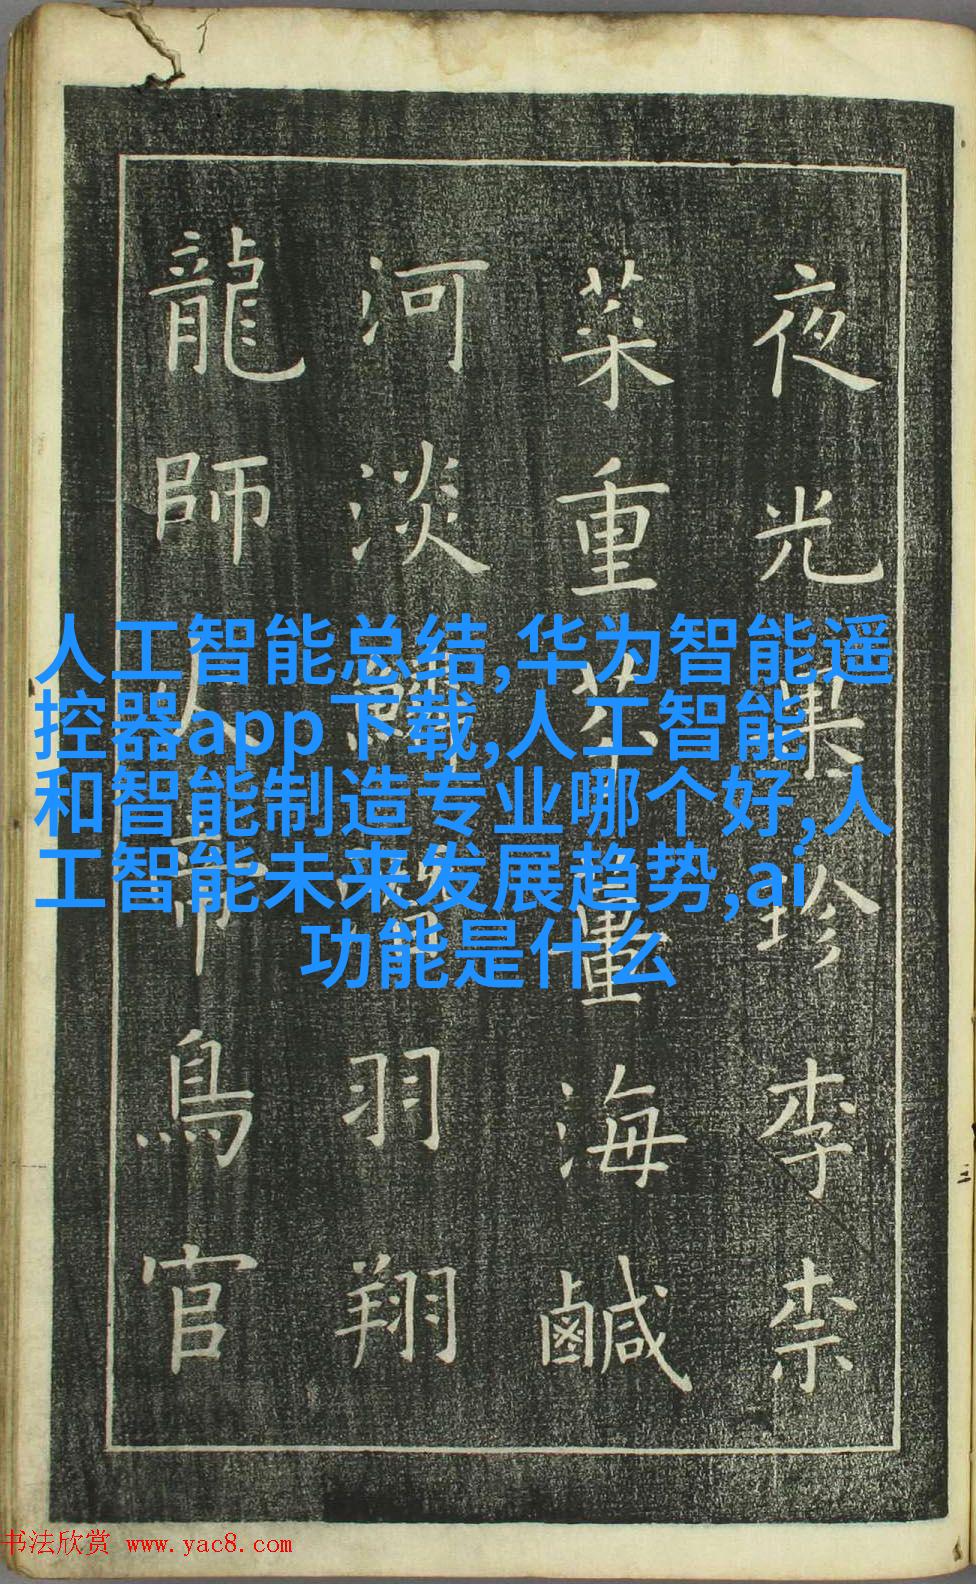 夜光果珍李柰
菜重芥薑海鹹
河淡鱗羽翔
龍師火帝鳥官
人工智能总结,华为智能遥
控器app下载,人工智能
和智能制造专业哪个好,人
工智能未来发展趋势,ai
功能是什么
书法欣赏 www.yac8.com